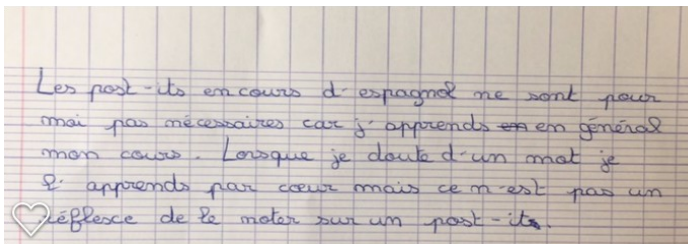 Les post-its en cours d'espagnol ne sont pour
moi pas nécessaires car j'apprends en en général
mon cours. Lorsque je doute d'un mot je
l'apprends par cœur mais ce n'est pas un
réflexe de le noter sur un post-its.